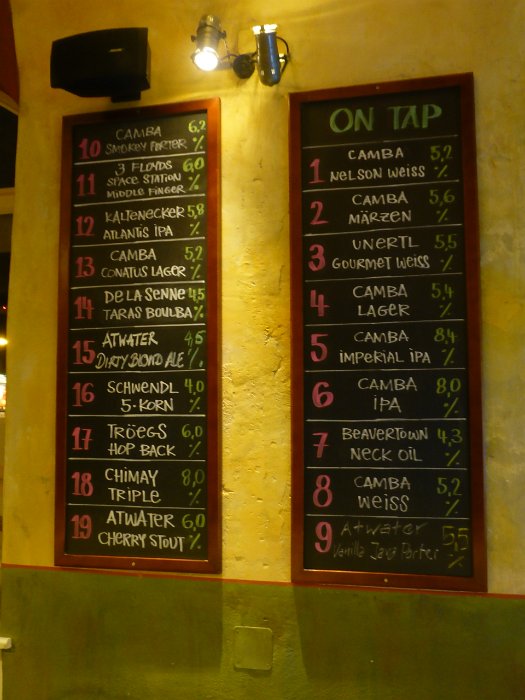 10 CAMBA 6,2
SMOKEY PORTER %
11 3 FLOYDS 6,0
SPACE STATION
MIDDLE FINGER %
12 KALTENECKER 5,8
ATLANTIS IPA %
13 CAMBA 5,2
CONATUS LAGER %
14 DE LA SENNE 4,5
TARAS BOULBA %
15 ATWATER 4,5
DIRTY BLOND ALE %
16 SCHWENDL 4,0
5-KORN %
17 TRÖEGS 6,0
HOP BACK %
18 CHIMAY 8,0
TRIPLE %
19 ATWATER 6,0
CHERRY STOUT %
ON TAP
1 CAMBA 5,2
NELSON WEISS %
2 CAMBA 5,6
MÄRZEN %
3 UNERTL 5,5
GOURMET WEISS %
4 CAMBA 5,4
LAGER %
5 CAMBA 8,4
IMPERIAL IPA %
6 CAMBA 8,0
IPA %
7 BEAVERTOWN 4,3
NECK OIL %
8 CAMBA 5,2
WEISS %
9 Atwater 5,5
Vanilla Java Porter %